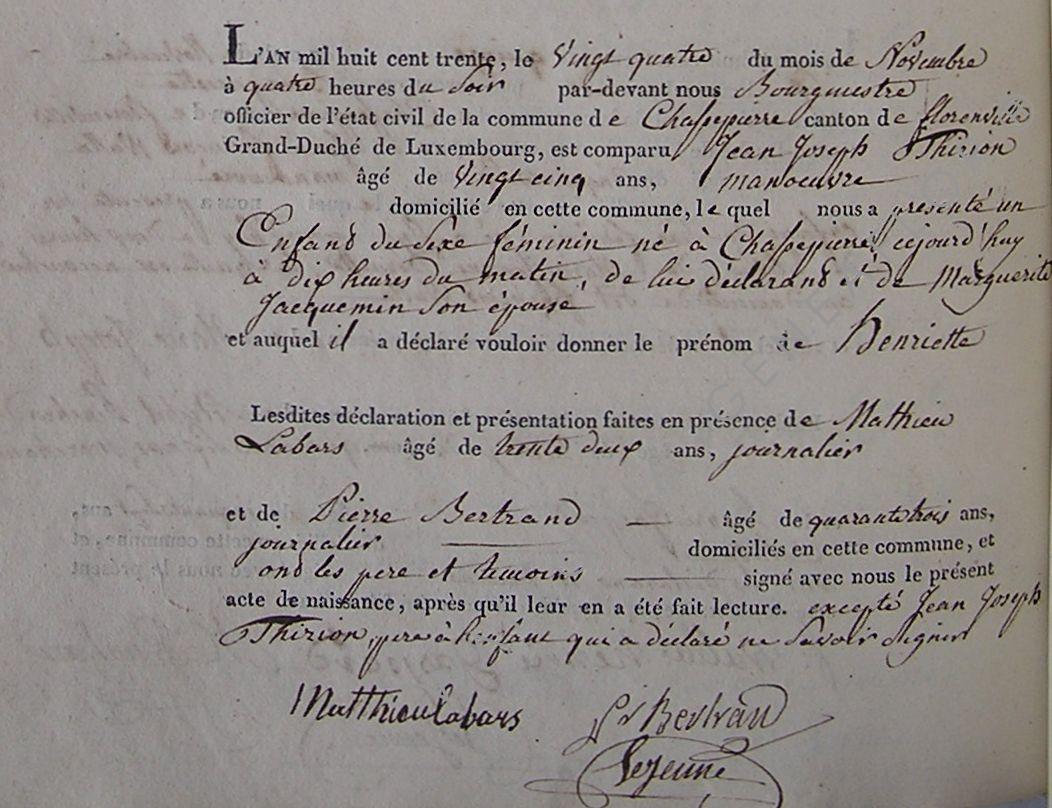 L'AN mil huit cent trente, le Vingt quatre du mois de Novembre
à quatre heures du Soir par-devant nous Bourgmestre
officier de l'état civil de la commune de Chassepierre canton de florenville
Grand-Duché de Luxembourg, est comparu Jean Joseph Thirion
âgé de Vingt cinq ans, manoeuvre
domicilié en cette commune, le quel nous a présenté un
Enfand du Sexe féminin né à Chassepierre cejourd'huy
à dix heures du matin, de lui déclarand et de Marguerite
Jacquemin Son épouse
et auquel il a déclaré vouloir donner le prénom de Henriette
Lesdites déclaration et présentation faites en présence de Mathieu
Labars âgé de trente deux ans, journalier
et de Pierre Bertrand — âgé de quarante trois ans,
journalier — domiciliés en cette commune, et
ond les pere et temoins — signé avec nous le présent
acte de naissance, après qu'il leur en a été fait lecture. excepté Jean Joseph
Thirion pere à l'enfant qui a déclaré ne Savoir Signer
Matthieu Labars Pr Bertrand
Lejeune